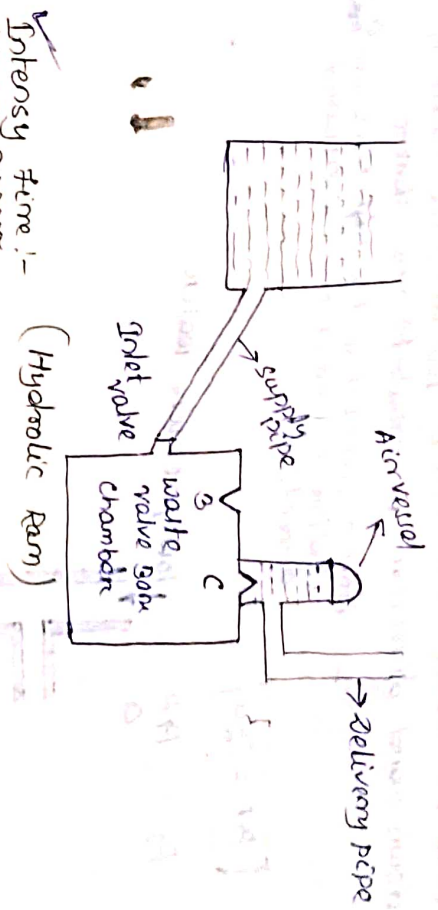 Air vessel
Delivery pipe
supply
pipe
Inlet
valve
B
C
waste
valve
chamber
(Hydroolic Ram)